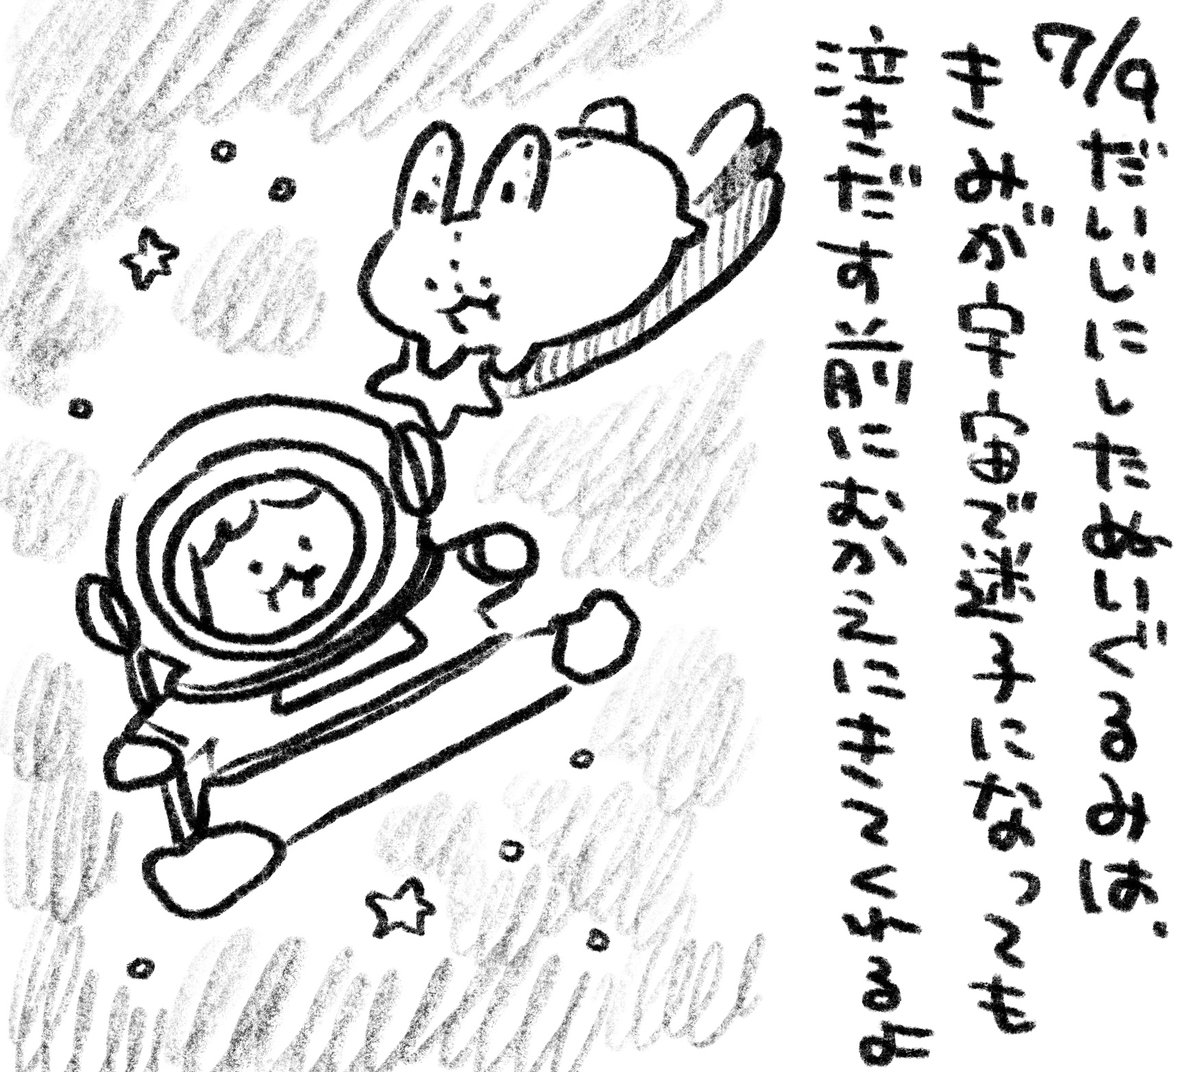 7/9 だいじにしたぬいぐるみは、
きみが宇宙で迷子になっても
泣きだす前にむかえにきてくれるの